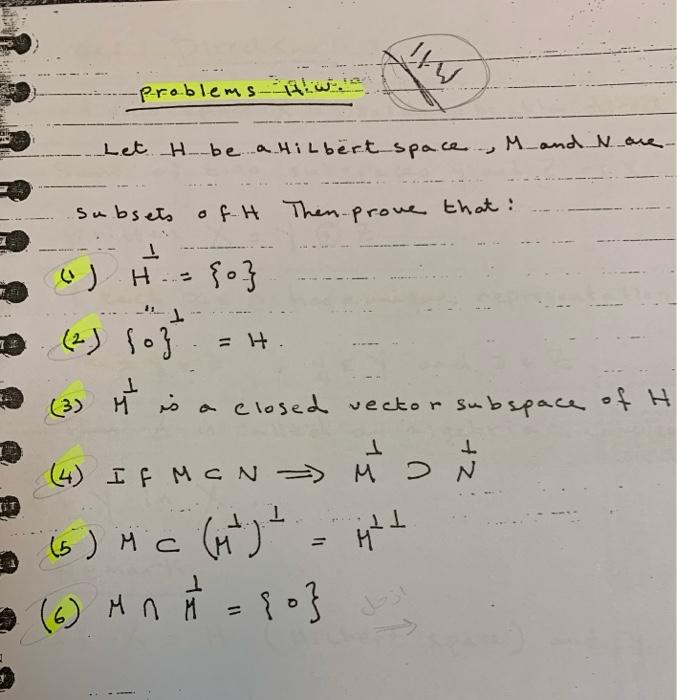 Problems H.W.
H/W
Let H be a Hilbert space, M and N are
subsets of H Then prove that:
(1) H^⊥ = {0}
(2) {0}^⊥ = H.
(3) M^⊥ is a closed vector subspace of H
(4) If M ⊂ N ⟹ M^⊥ ⊃ N^⊥
(5) M ⊂ (M^⊥)^⊥ = M^⊥⊥
(6) M ∩ M^⊥ = {0}